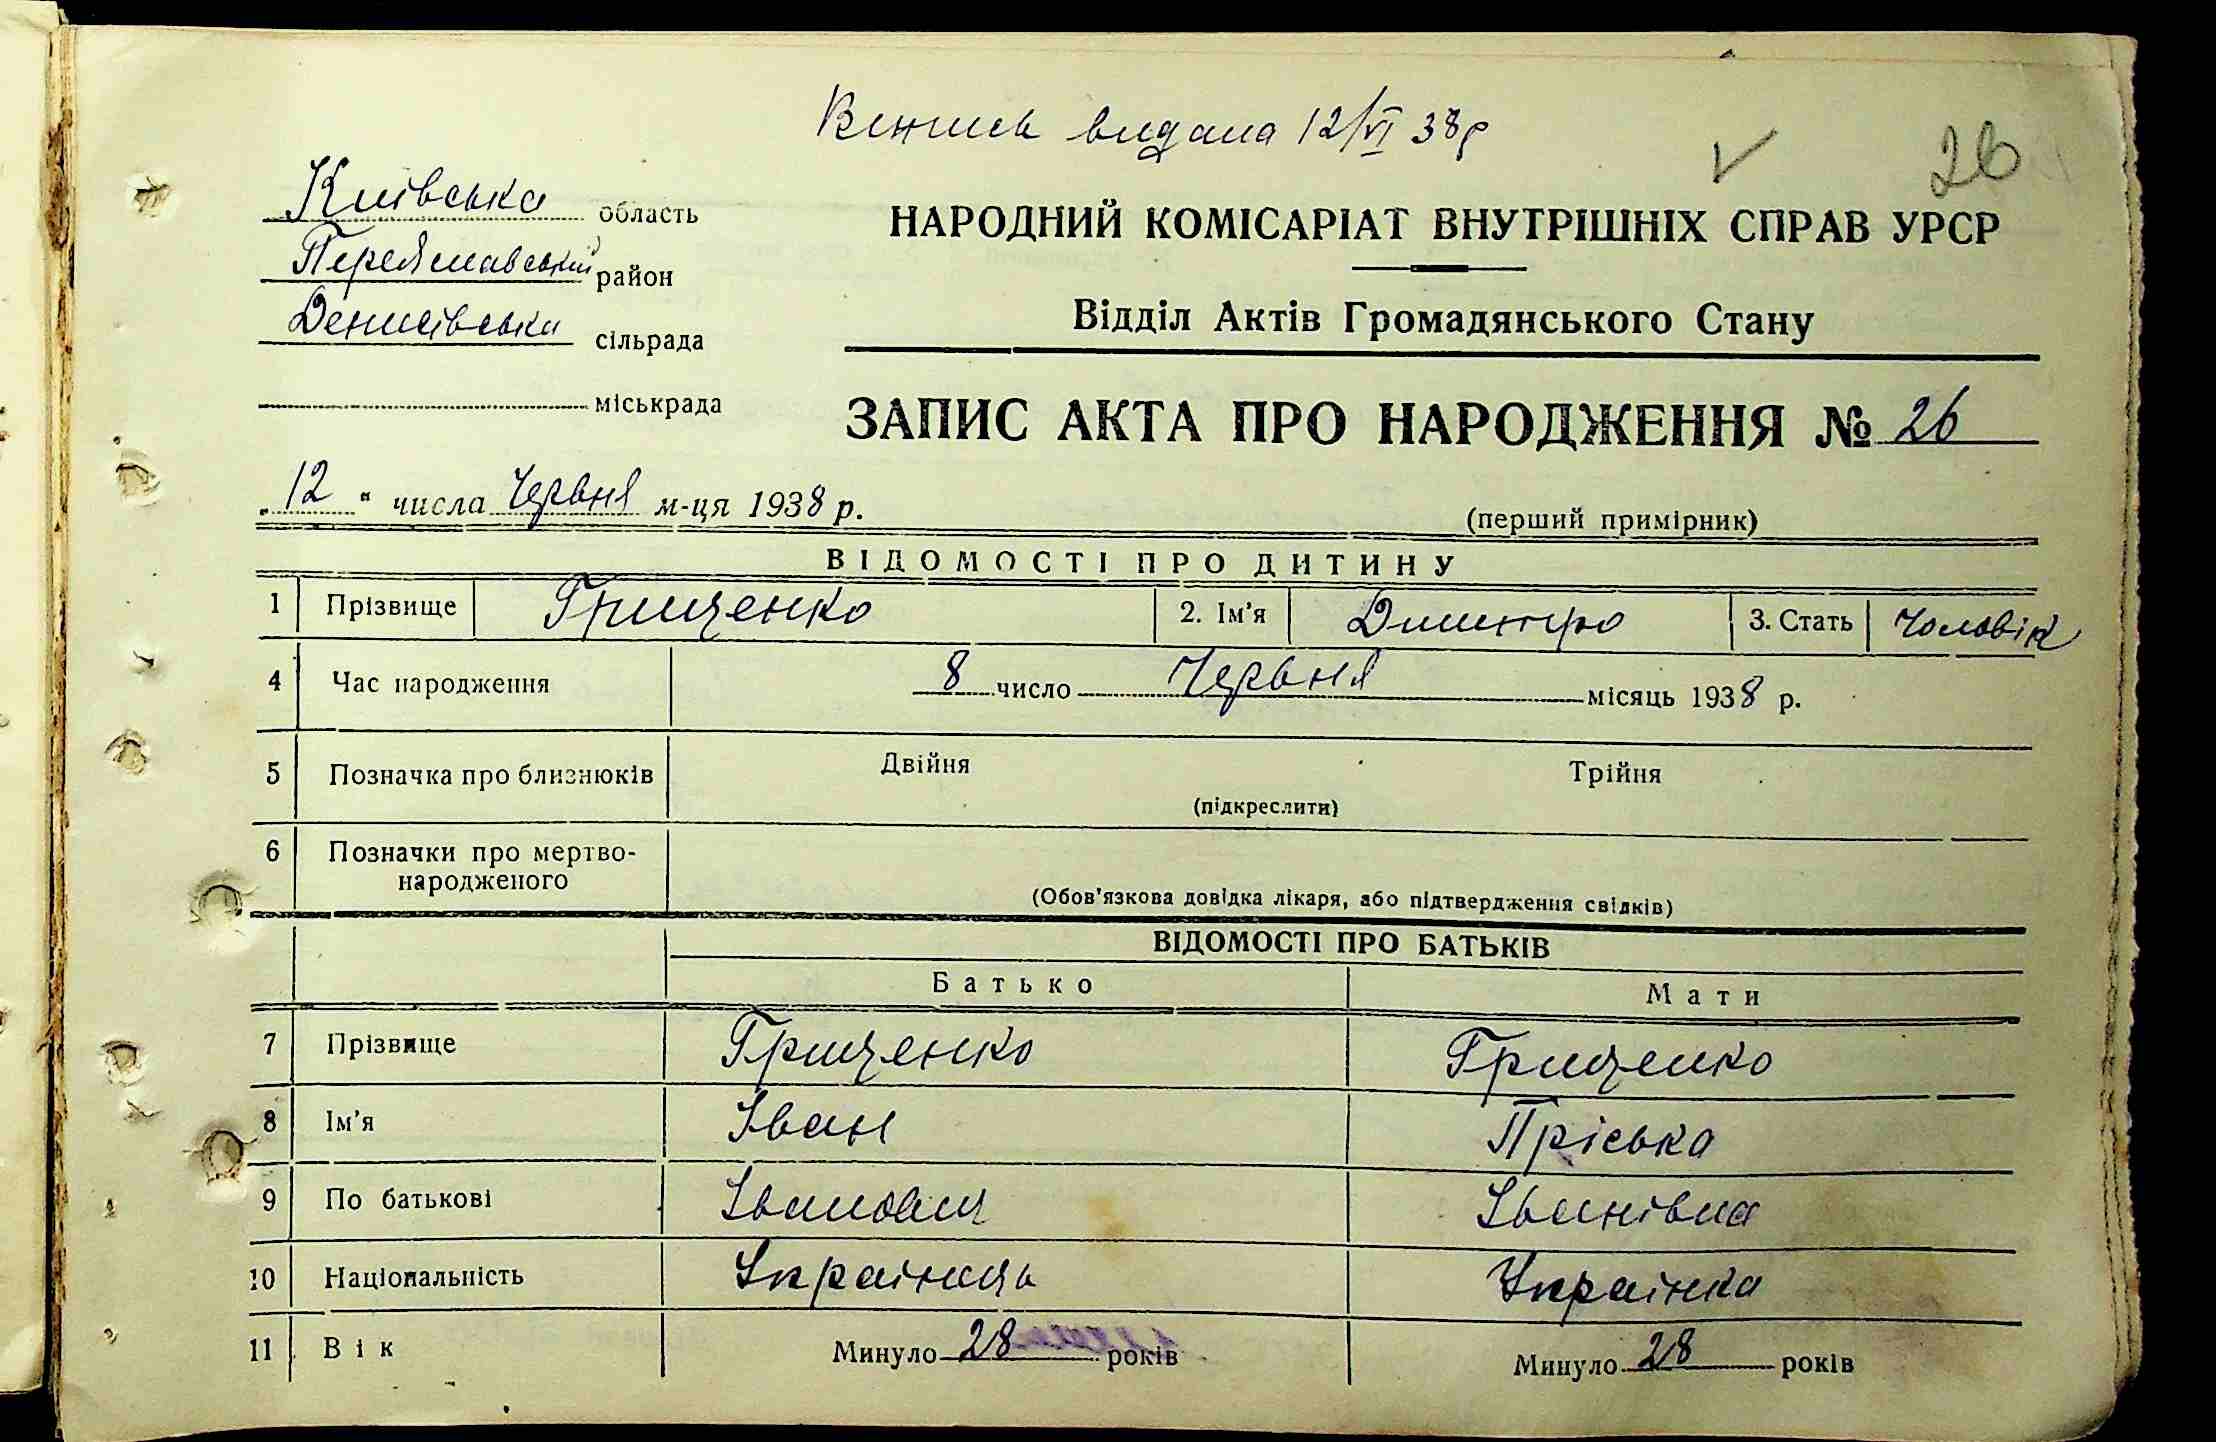 Випись видана 12/VI 38р
26
Київська область
Переяславський район
Денисівська сільрада
міськрада
НАРОДНИЙ КОМІСАРІАТ ВНУТРІШНІХ СПРАВ УРСР
Відділ Актів Громадянського Стану
ЗАПИС АКТА ПРО НАРОДЖЕННЯ № 26
„12“ числа Червня м-ця 1938 р.
(перший примірник)
ВІДОМОСТІ ПРО ДИТИНУ
1 Прізвище Грищенко 2. Ім'я Дмитро 3. Стать Чоловік
4 Час народження 8 число Червня місяць 1938 р.
5 Позначка про близнюків Двійня Трійня
(підкреслити)
6 Позначки про мертво-
народженого
(Обов'язкова довідка лікаря, або підтвердження свідків)
ВІДОМОСТІ ПРО БАТЬКІВ
Батько Мати
7 Прізвище Грищенко Грищенко
8 Ім'я Іван Пріська
9 По батькові Іванович Іванівна
10 Національність Українець Українка
11 Вік Минуло 28 років Минуло 28 років